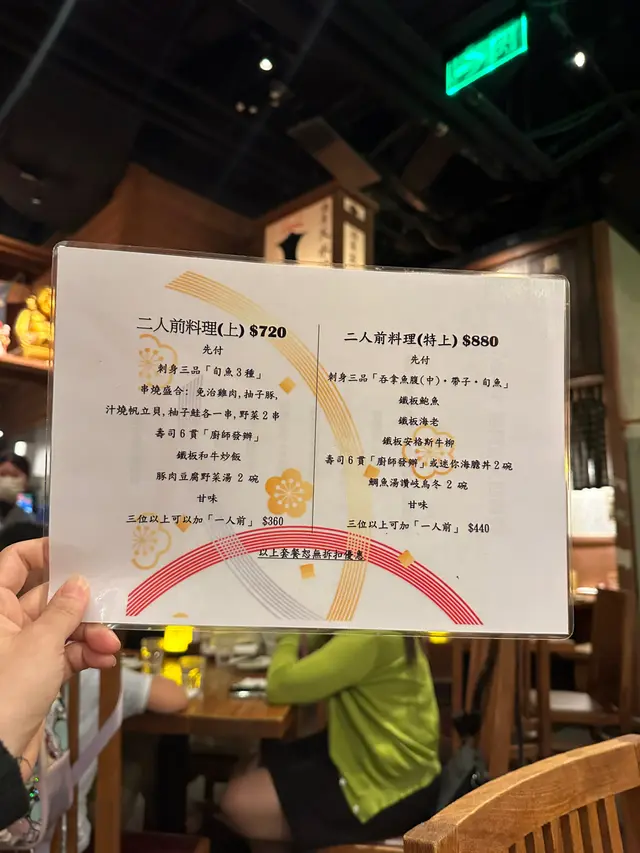 二人前料理(上) $720
先付
刺身三品「旬魚3種」
串燒盛合：免治雞肉,柚子豚,
汁燒帆立貝,柚子鮭各一串,野菜2串
壽司6貫「廚師發辦」
鐵板和牛炒飯
豚肉豆腐野菜湯 2 碗
甘味
三位以上可以加「一人前」 $360
二人前料理(特上) $880
先付
刺身三品「吞拿魚腹(中)・帶子・旬魚」
鐵板鮑魚
鐵板海老
鐵板安格斯牛柳
壽司6貫「廚師發辦」或迷你海膽丼2碗
鯛魚湯讚岐烏冬 2 碗
甘味
三位以上可加「一人前」 $440
以上套餐恕無折扣優惠